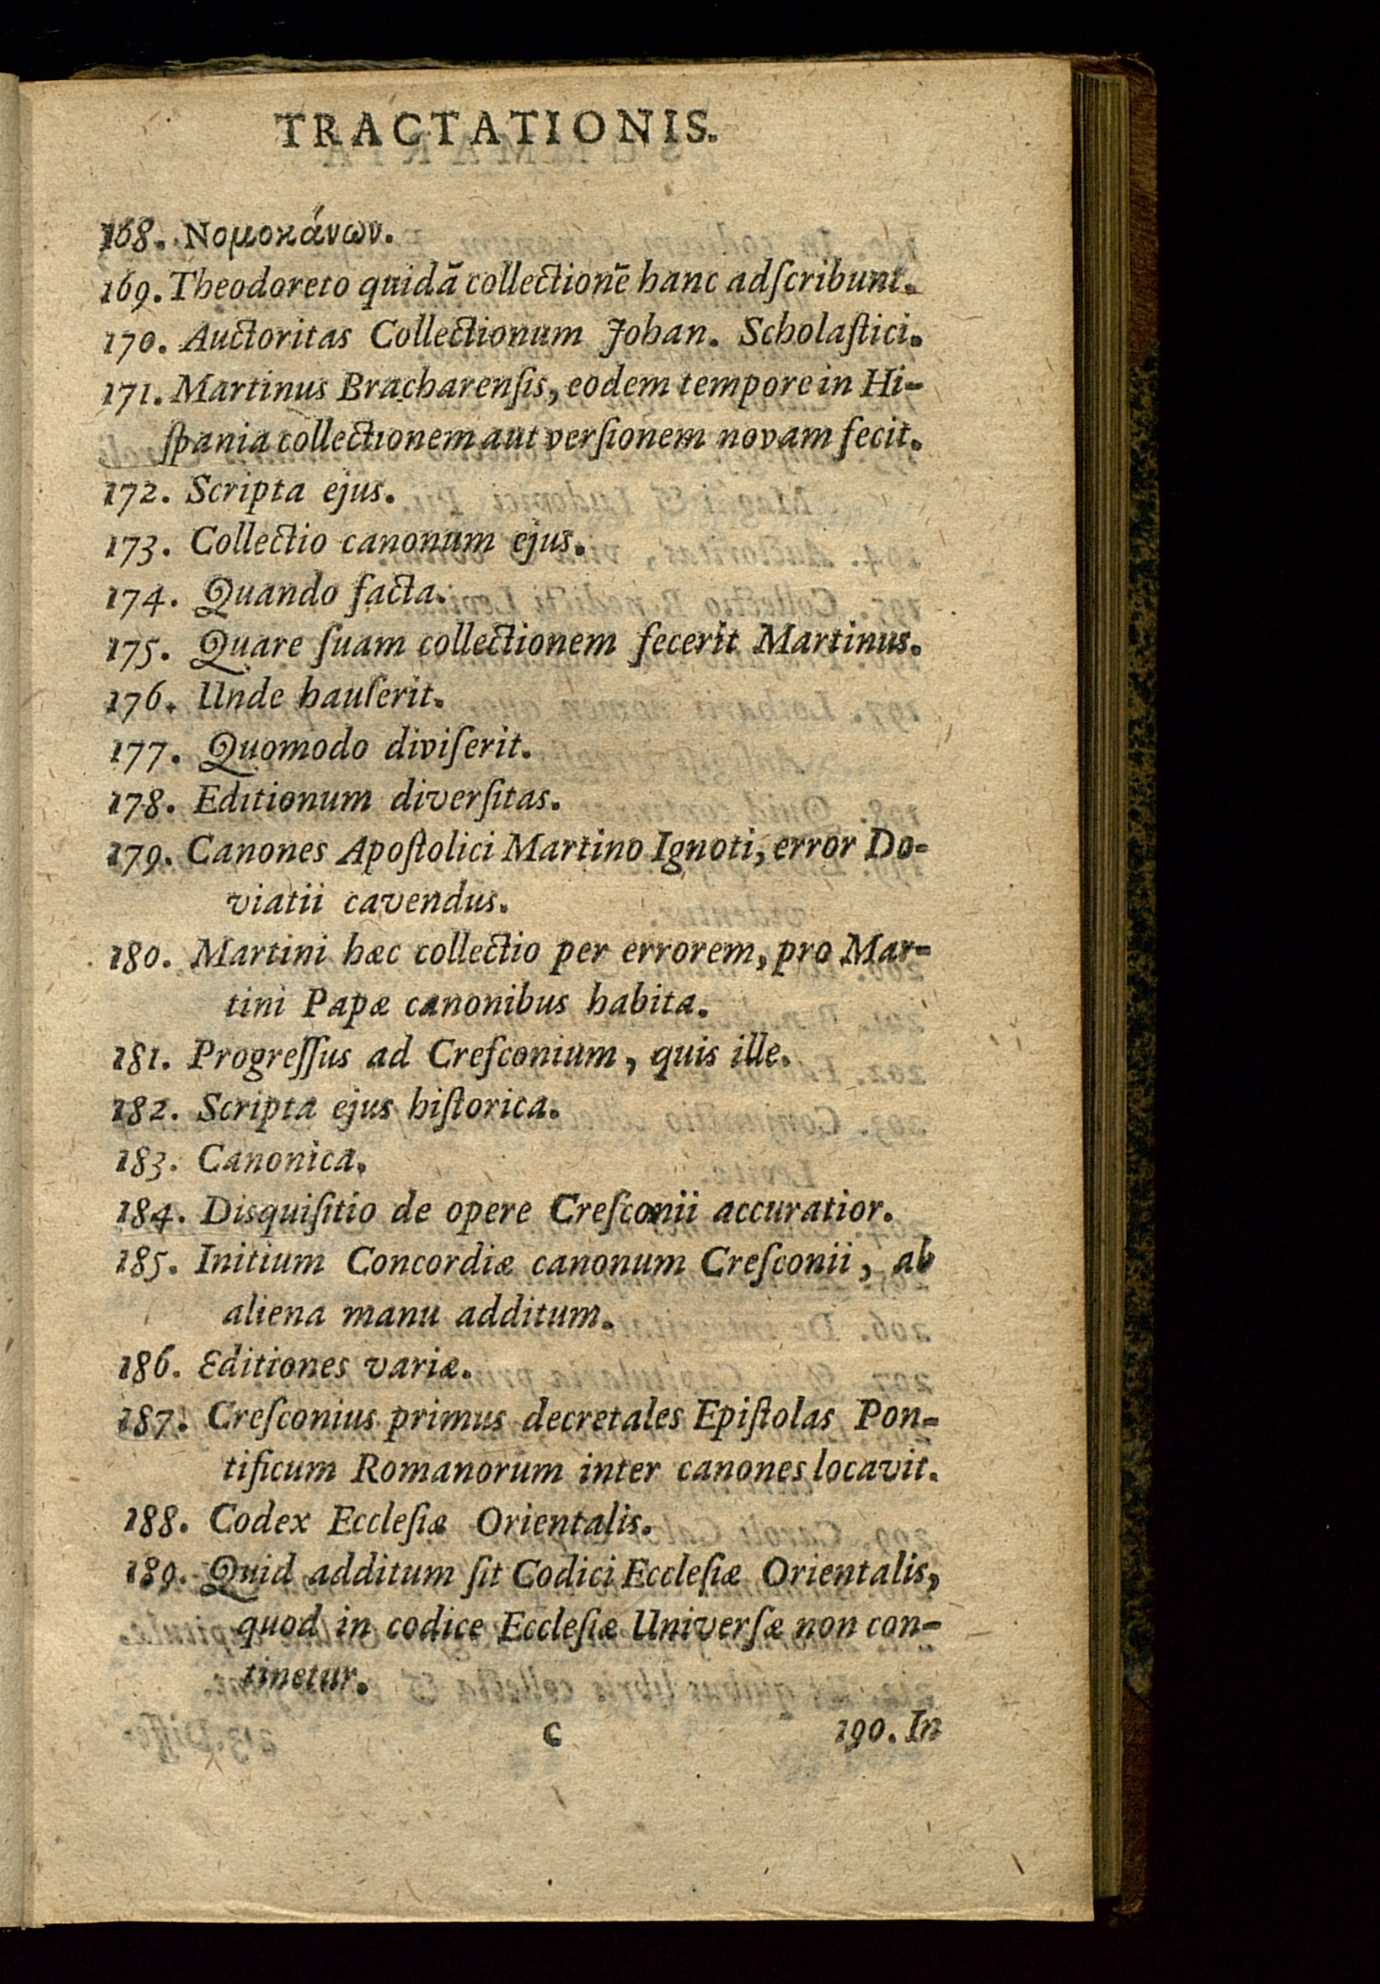 TRACTATIONIS.
168. Νομοκάνων.
169. Theodoreto quidā collectionē hanc adſcribunt.
170. Auctoritas Collectionum Johan. Scholaſtici.
171. Martinus Bracharenſis, eodem tempore in Hi-
ſpania collectionem aut verſionem novam fecit.
172. Scripta ejus.
173. Collectio canonum ejus.
174. Quando facta.
175. Quare ſuam collectionem fecerit Martinus.
176. Unde hauſerit.
177. Quomodo diviſerit.
178. Editionum diverſitas.
179. Canones Apoſtolici Martino Ignoti, error Do-
viatii cavendus.
180. Martini hæc collectio per errorem, pro Mar-
tini Papæ canonibus habita.
181. Progreſſus ad Creſconium, quis ille.
182. Scripta ejus hiſtorica.
183. Canonica.
184. Disquiſitio de opere Creſconii accuratior.
185. Initium Concordiæ canonum Creſconii, ab
aliena manu additum.
186. Editiones variæ.
187. Creſconius primus decretales Epiſtolas Pon-
tificum Romanorum inter canones locavit.
188. Codex Eccleſiæ Orientalis.
189. Quid additum ſit Codici Eccleſiæ Orientalis,
quod in codice Eccleſiæ Univerſæ non con-
tinetur.
C 190. In